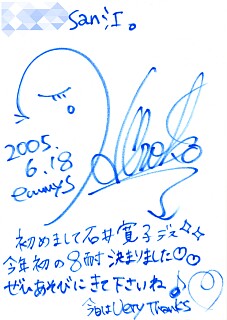 San江。
2005.
6.18
Hiroko
初めまして石井寛子デス
今年初の8耐決まりました
ぜひあそびにきて下さいね♪
今日はVery Thanks